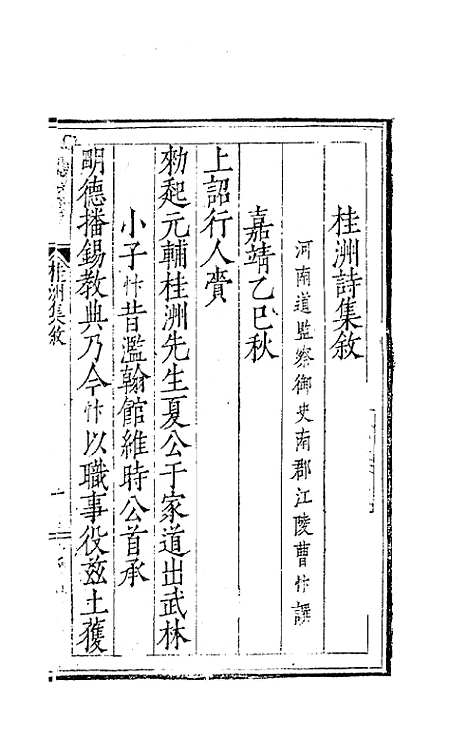 桂洲詩集敘
河南道監察御史南郡江陵曹忭譔
嘉靖乙巳秋
上詔行人賫
勑起元輔桂洲先生夏公于家道出武林
小子忭昔濫翰館維時公首承
明德播錫教典乃今忭以職事役兹土獲
桂洲集敘
一